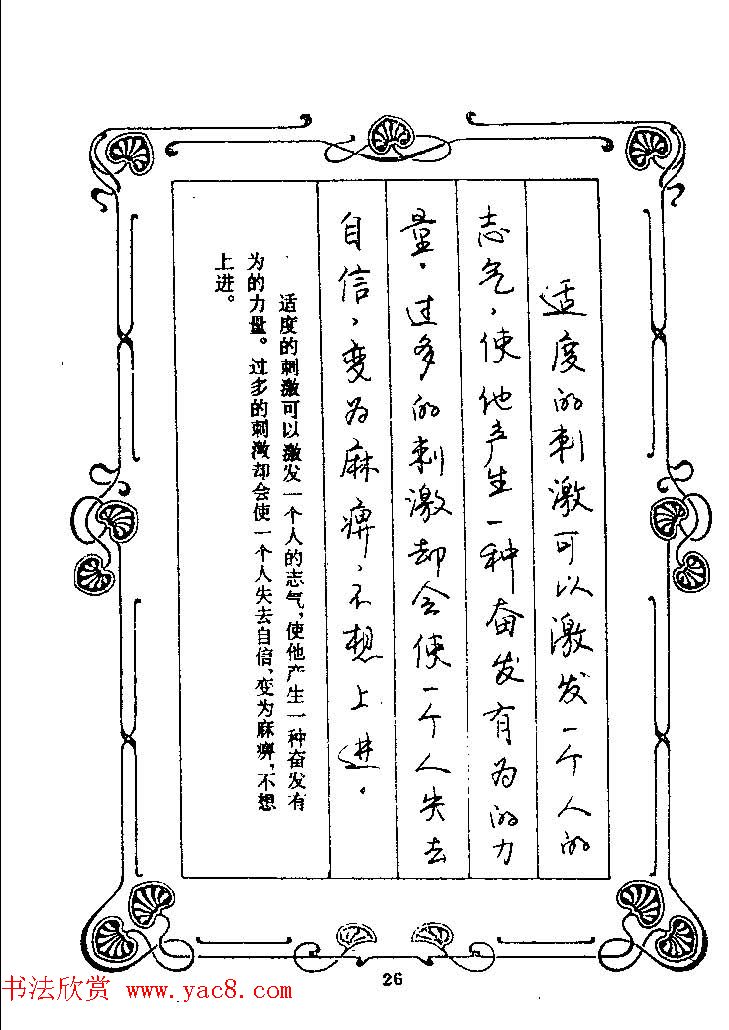 适度的刺激可以激发一个人的
志气，使他产生一种奋发有为的力
量。过多的刺激却会使一个人失去
自信，变为麻痹，不想上进。
适度的刺激可以激发一个人的志气，使他产生一种奋发有
为的力量。过多的刺激却会使一个人失去自信、变为麻痹，不想
上进。
26
书法欣赏 www.yac8.com